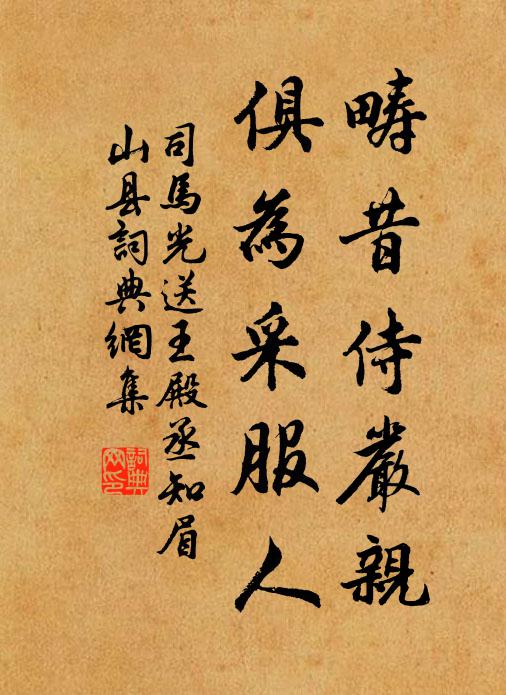 疇昔侍嚴親
俱為采服人
司馬光送王殿丞知眉
山县詞典網集
詞典網印